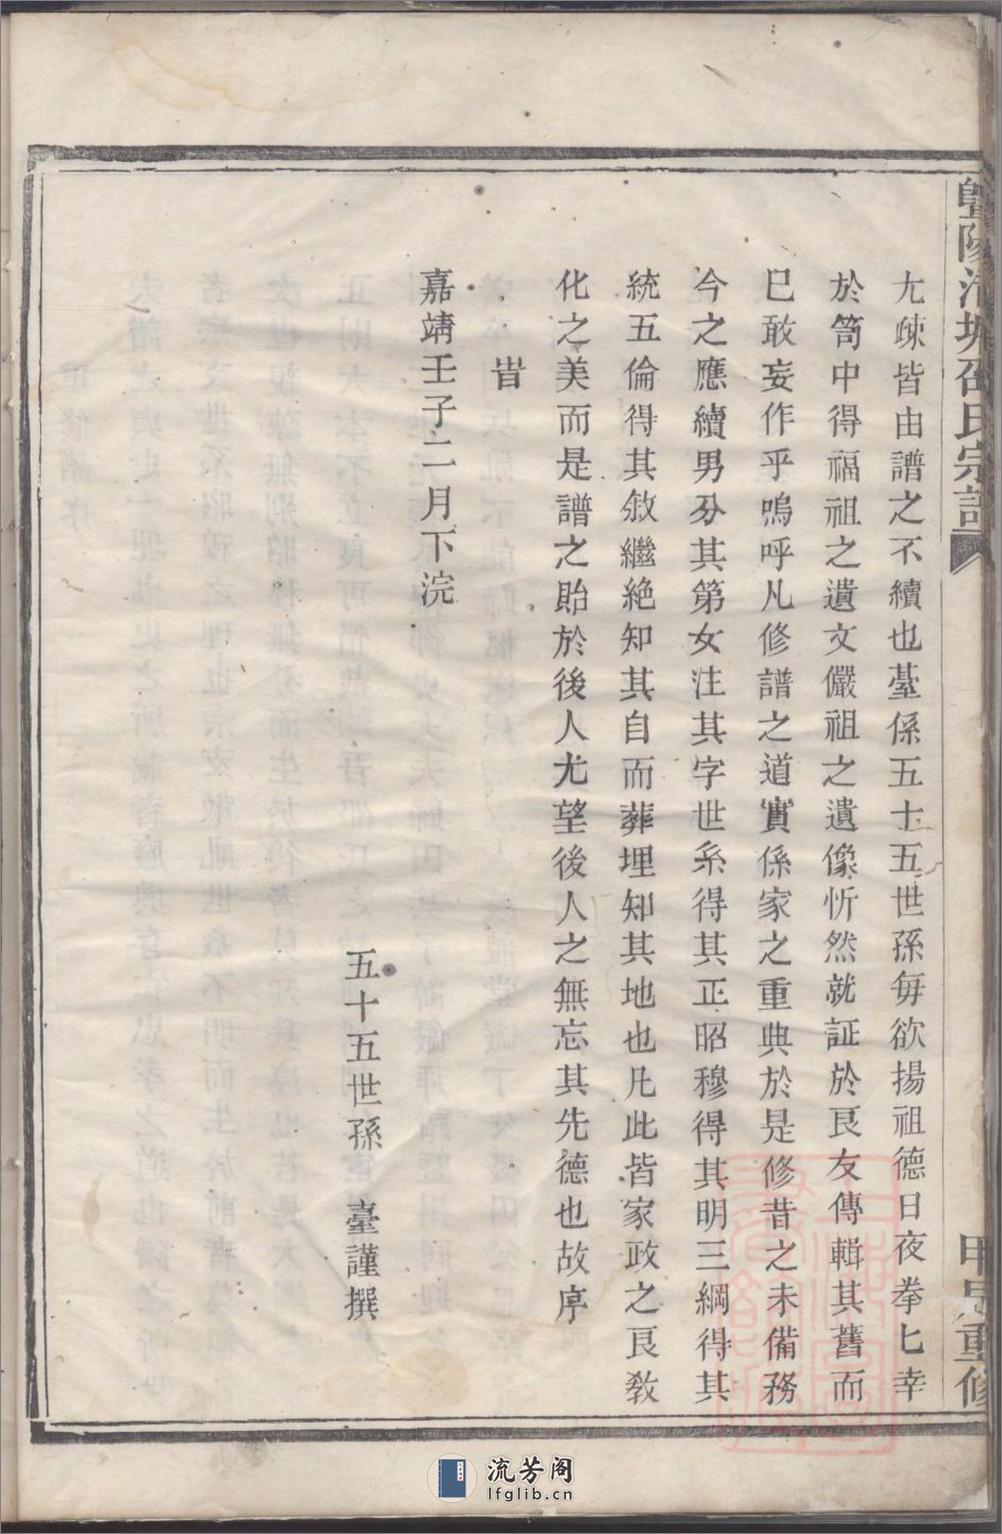 尢疎皆由譜之不續也臺係五十五世孫每欲揚祖德日夜拳匕幸
於笥中得福祖之遺文儼祖之遺像忻然就証於良友傳輯其舊而
巳敢妄作乎嗚呼凡修譜之道實係家之重典於是修昔之未備務
今之應續男分其第女注其字世系得其正昭穆得其明三綱得其
統五倫得其敘繼絶知其自而葬埋知其地也凡此皆家政之良敎
化之美而是譜之貽於後人尤望後人之無忘其先德也故序
旹
嘉靖壬子二月下浣
五十五世孫 臺謹撰
暨陽 塘邵氏宗譜
重修
流芳阁
lfglib.cn